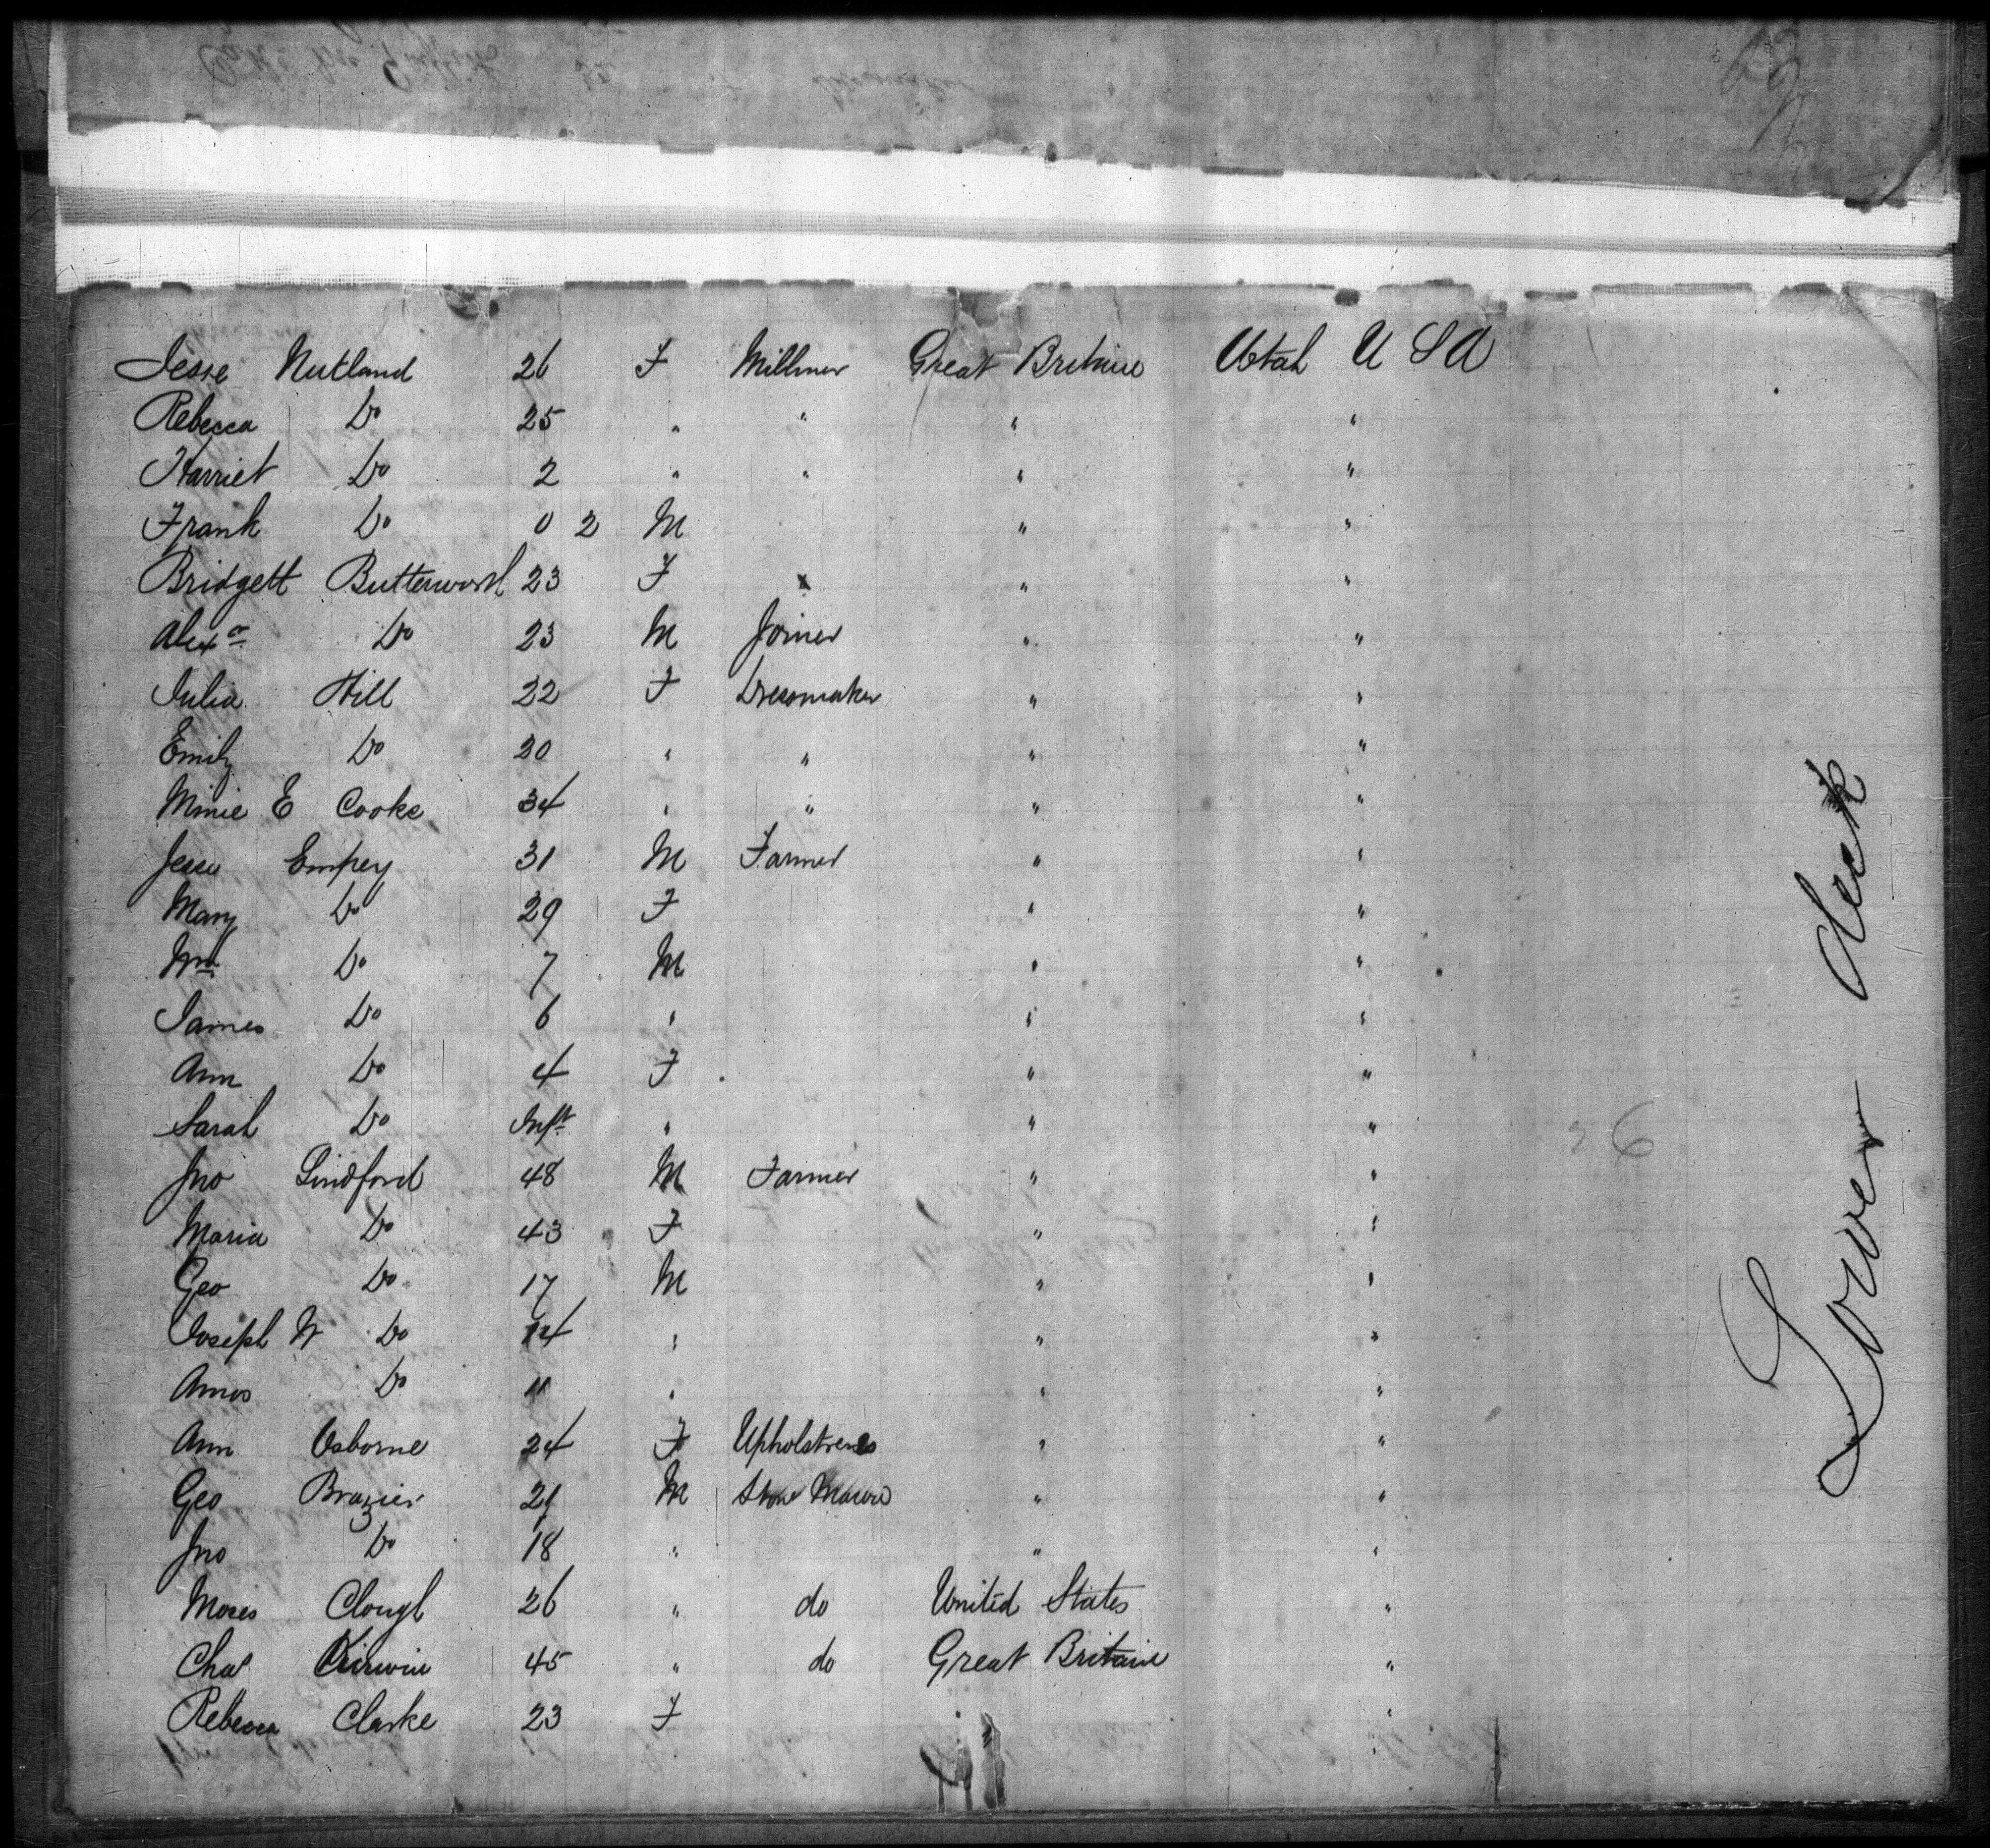 Jesse Nutland 26 F Milliner Great Britain Utah U S A
Rebecca Do 25 " " " "
Harriet Do 2 " " " "
Frank Do 0 2 M " "
Bridgett Butterworth 23 F " "
Alexr Do 23 M Joiner " "
Julia Hill 22 F Dressmaker " "
Emily Do 20 " " " "
Minie E Cooke 34 " " " "
Jesse Empey 31 M Farmer " "
Mary Do 29 F " "
Wm Do 7 M " "
James Do 6 " " "
Ann Do 4 F " "
Sarah Do Inft " " "
Jno Lindford 48 M Farmer " "
Maria Do 43 F " "
Geo Do 17 M " "
Joseph W Do 14 " " "
Amos Do 11 " " "
Ann Osborne 24 F Upholstress " "
Geo Brazier 21 M Stone Mason " "
Jno Do 18 " " "
Moses Clough 26 " do United States "
Chas Kirwin 45 " do Great Britain "
Rebecca Clarke 23 F " "
Lower deck